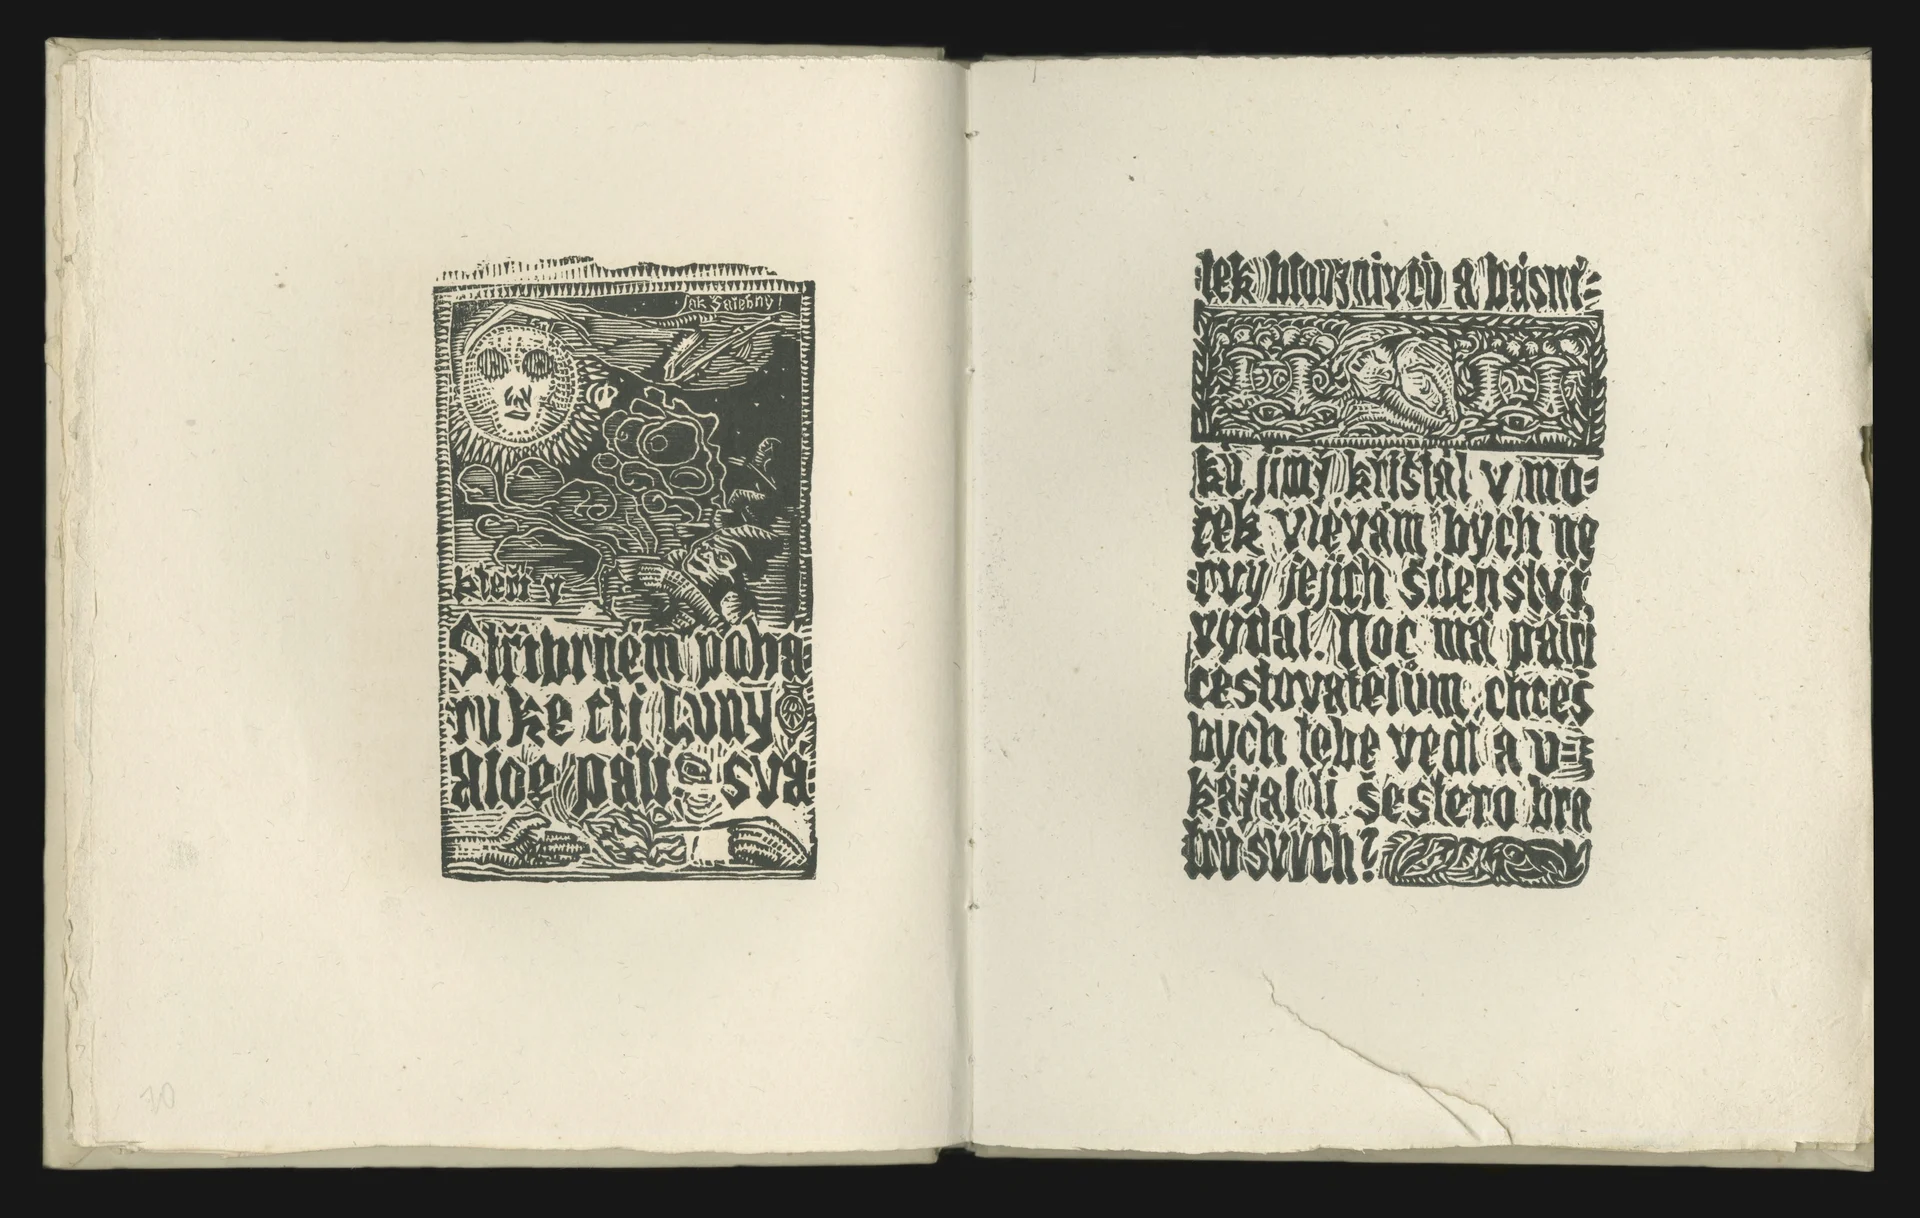 kteří v
Stříbrném pohá-
ru ke cti Luny
aloe pálí sva-
tek blovznivců a básní-
ků jimž křišťál v mo-
zek vlévám bych ne
rvy jejich šílenství
vydal. Noc má patří
cestovatelům, chceš
bych tebe vedl a u-
kázal ti šestero bra
trů svých?